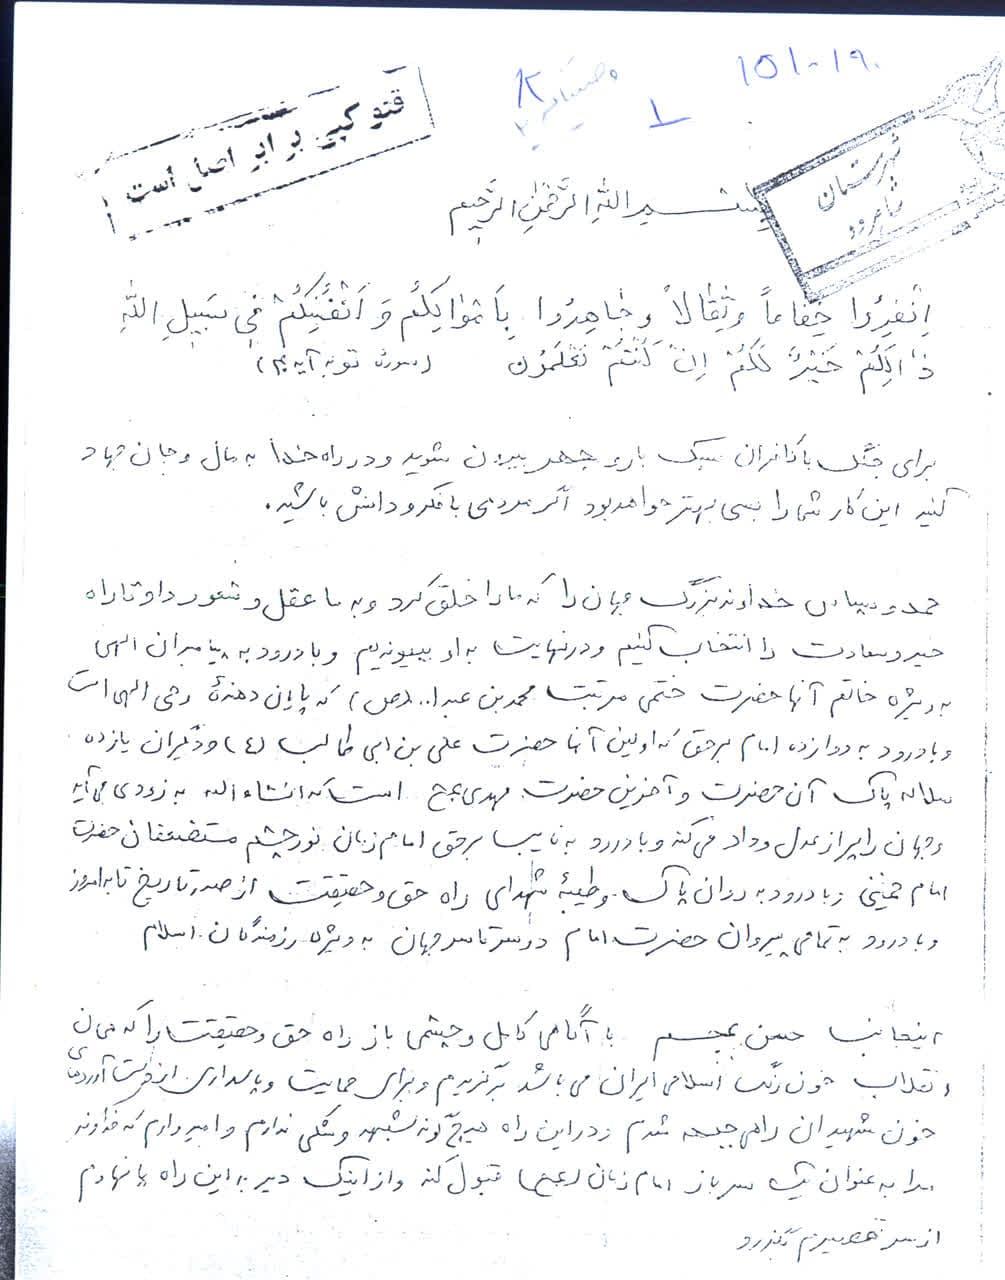 ۱۵۱۰۰۱۹۰
وصیتنامه
۱
فتو کپی برابر اصل است
شهرستان
شاهرود
بسم الله الرحمن الرحیم
اِنْفِرُوا خِفافاً وَثِقٰالاً وَجٰاهِدُوا بِاَمْوٰالِکُمْ وَ اَنْفُسِکُمْ فی سَبیلِ اللهِ
ذٰالِکُمْ خَیْرٌ لَکُمْ اِنْ کُنْتُمْ تَعْلَمُون (سوره توبه آیه ۴۱)
برای جنگ با کافران سبک بار و مجهز بیرون شوید و در راه خدا به مال و جان جهاد
کنید این کار شما را بسی بهتر خواهد بود اگر مردمی با فکر و دانش باشید.
حمد و سپاس خداوند بزرگ جهان را که ما را خلق کرد و به ما عقل و شعور داد تا راه
خیر و سعادت را انتخاب کنیم و در نهایت به او بپیوندیم و با درود به پیامبران الهی
به ویژه خاتم آنها حضرت ختمی مرتبت محمد بن عبدا... (ص) که پایان دهندهٔ وحی الهی است
و با درود به دوازده امام برحق که اولین آنها حضرت علی بن ابی طالب (ع) و دیگران یازده
سلاله پاک آن حضرت و آخرین حضرت مهدی عج است که انشاء اله به زودی می آید
و جهان را پر از عدل و داد می کند و با درود به نایب برحق امام زمان نور چشم مستضعفان حضرت
امام خمینی و با درود به روان پاک وطیبهٔ شهدای راه حق و حقیقت از صدر تاریخ تا به امروز
و با درود به تمامی پیروان حضرت امام در سرتاسر جهان به ویژه رزمندگان اسلام
اینجانب حسن با آگاهی کامل و چشمی باز راه حق و حقیقت را که همان
انقلاب خون رنگ اسلامی ایران می باشد برگزیدم و برای حمایت و پاسداری از دست آوردهای
خون شهیدان راهی جبهه شدم و در این راه هیچ گونه شبهه و شکی ندارم و امیدوارم که خداوند
مرا به عنوان یک سرباز امام زمان (عج) قبول کند و از اینکه دیر به این راه پا نهادم
از سر تقصیرم بگذرد